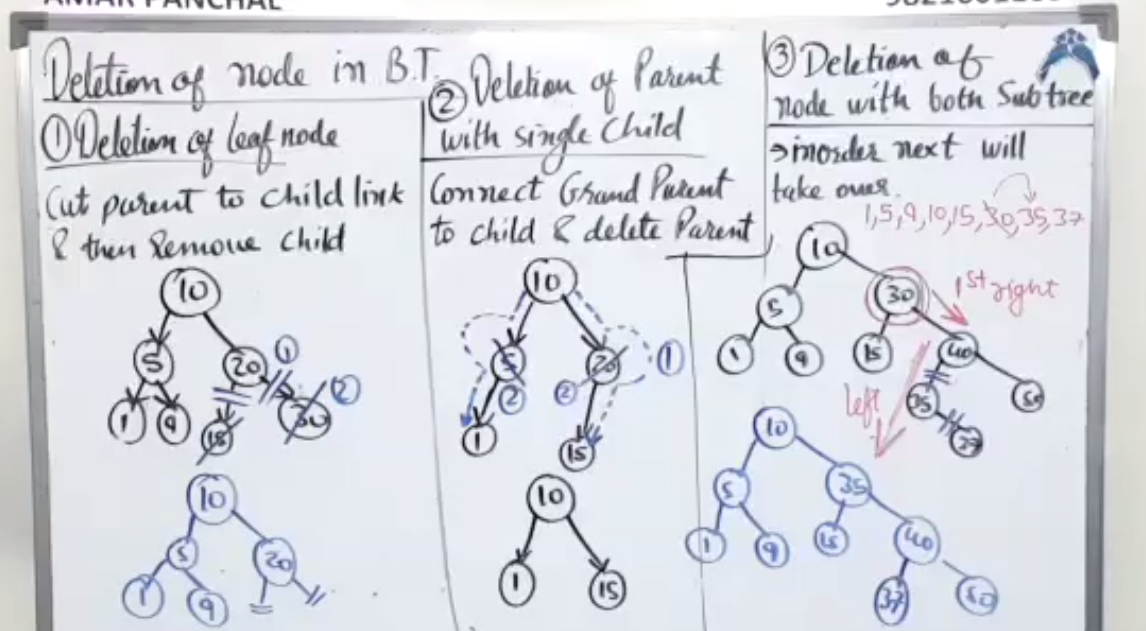 AMAR PANCHAL
Deletion of node in B.T.
① Deletion of leaf node
Cut parent to child link
& then Remove child
10
5 20 ①
1 9 15 30 ②
10
5 20
1 9
② Deletion of Parent
with single Child
Connect Grand Parent
to child & delete Parent
10
5 20 ①
② ②
1 15
10
1 15
③ Deletion of
node with both Subtree
→ inorder next will
take over.
1,5,9,10,15,30,35,37
10
5 30 1st right
1 9 15 40
left 35 50
37
10
5 35
1 9 15 40
37 50